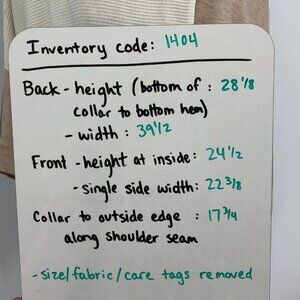 Inventory code: 1404
Back - height (bottom of : 28 1/8
collar to bottom hem)
- width : 39 1/2
Front - height at inside: 24 1/2
- single side width: 22 3/8
Collar to outside edge : 17 3/4
along shoulder seam
- size/fabric/care tags removed